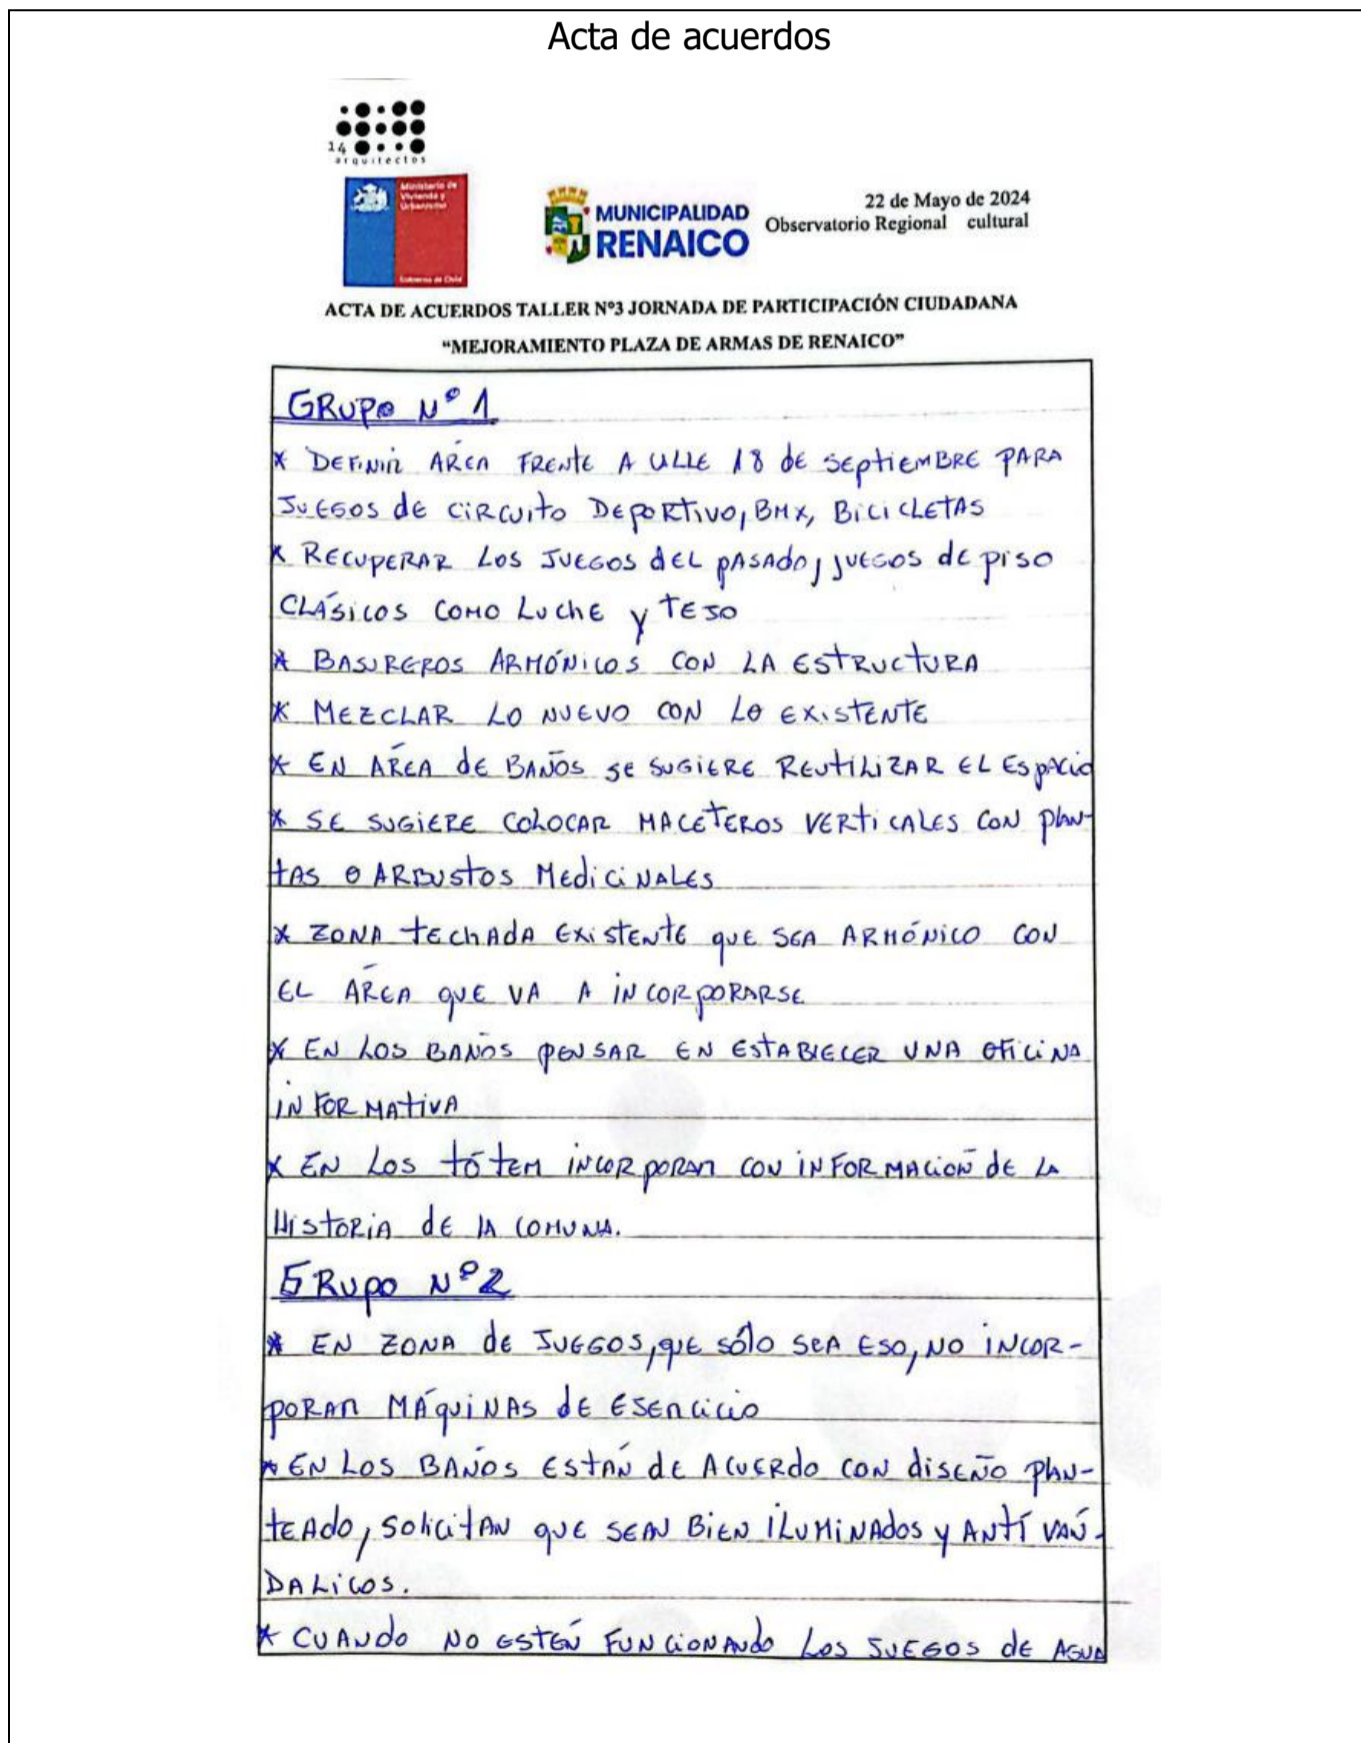 Acta de acuerdos
14
arquitectos
Ministerio de
Vivienda y
Urbanismo
Gobierno de Chile
MUNICIPALIDAD
RENAICO
22 de Mayo de 2024
Observatorio Regional cultural
ACTA DE ACUERDOS TALLER Nº3 JORNADA DE PARTICIPACIÓN CIUDADANA
“MEJORAMIENTO PLAZA DE ARMAS DE RENAICO”
GRUPO Nº 1
* DEFINIR ÁREA FRENTE A CALLE 18 de SEPTIEMBRE PARA
JUEGOS de CIRCUITO DEPORTIVO, BMX, BICICLETAS
* RECUPERAR LOS JUEGOS dEL PASADO, JUEGOS de PISO
CLÁSICOS COMO LUCHE y TEJO
* BASUREROS ARMÓNICOS CON LA ESTRUCTURA
* MEZCLAR LO NUEVO CON LO EXISTENTE
* EN ÁREA dE BAÑOS SE SUGIERE REUTILIZAR EL ESPACIO
* SE SUGIERE COLOCAR MACETEROS VERTICALES CON PLAN-
TAS O ARBUSTOS MEDICINALES
* ZONA TECHADA EXISTENTE QUE SEA ARMÓNICO CON
EL ÁREA QUE VA A INCORPORARSE
* EN LOS BAÑOS PENSAR EN ESTABLECER UNA OFICINA
INFORMATIVA
* EN LOS TÓTEM INCORPORAR CON INFORMACIÓN DE LA
HISTORIA dE LA COMUNA.
GRUPO Nº 2
* EN ZONA dE JUEGOS, QUE SÓLO SEA ESO, NO INCOR-
PORAR MÁQUINAS dE EJERCICIO
* EN LOS BAÑOS ESTÁN dE ACUERDO CON DISEÑO PLAN-
TEADO, SOLICITAN QUE SEAN BIEN ILUMINADOS y ANTÍ VÁN-
DALICOS.
* CUANDO NO ESTÉN FUNCIONANDO LOS JUEGOS DE AGUA